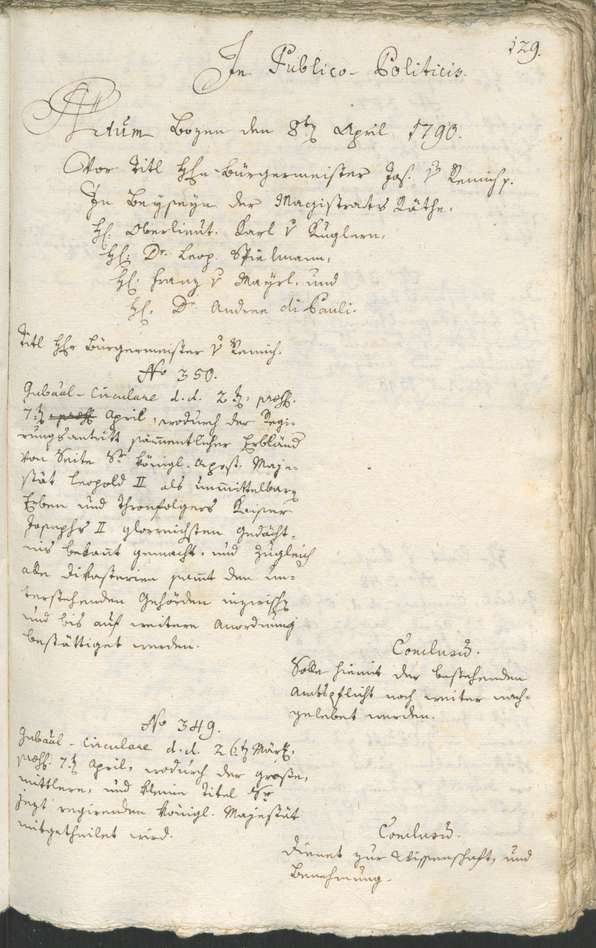 129.
In Publico-Politicis.
Actum Bozen den 8t April 1790.
Vor Titl Hhn Bürgermeister Jos. v Remich p.
In Beyseyn der Magistrats Räthe.
H. Oberlieut. Karl v Kuglern,
H. Dr. Leop. Spielmann,
H. Franz v Mayrl, und
H. Dr. Andree di Pauli.
Titl Hhr Bürgermeister v Remich.
No 350.
Gubäal-Circulare d. d. 2t, præs.
7t April, wodurch der Regi-
rungsantritt sämmentlicher Erbländ
von Seite Sr Königl. Apost. Maje-
stät Leopold II als unmittelbarn
Erben und Thronfolgers Kaiser
Josephs II glorreichsten Gedächt-
nis bekant gemacht, und zugleich
alle Dikasterien samt den un-
terstehenden Behörden
und bis auf weitere Anordnung
bestättiget werden.
Conclusum.
Solle hiemit der bestehenden
Amtspflicht noch weiter nach-
gelebet werden.
No 349.
Gubäal-Circulare d. d. 26t März,
præs. 7t April, wodurch der große,
mittlere, und kleine Titel Sr
jezt regirenden Königl. Majestät
mitgetheilet wird.
Conclusum.
Dienet zur Wissenschaft, und
Benehmung.